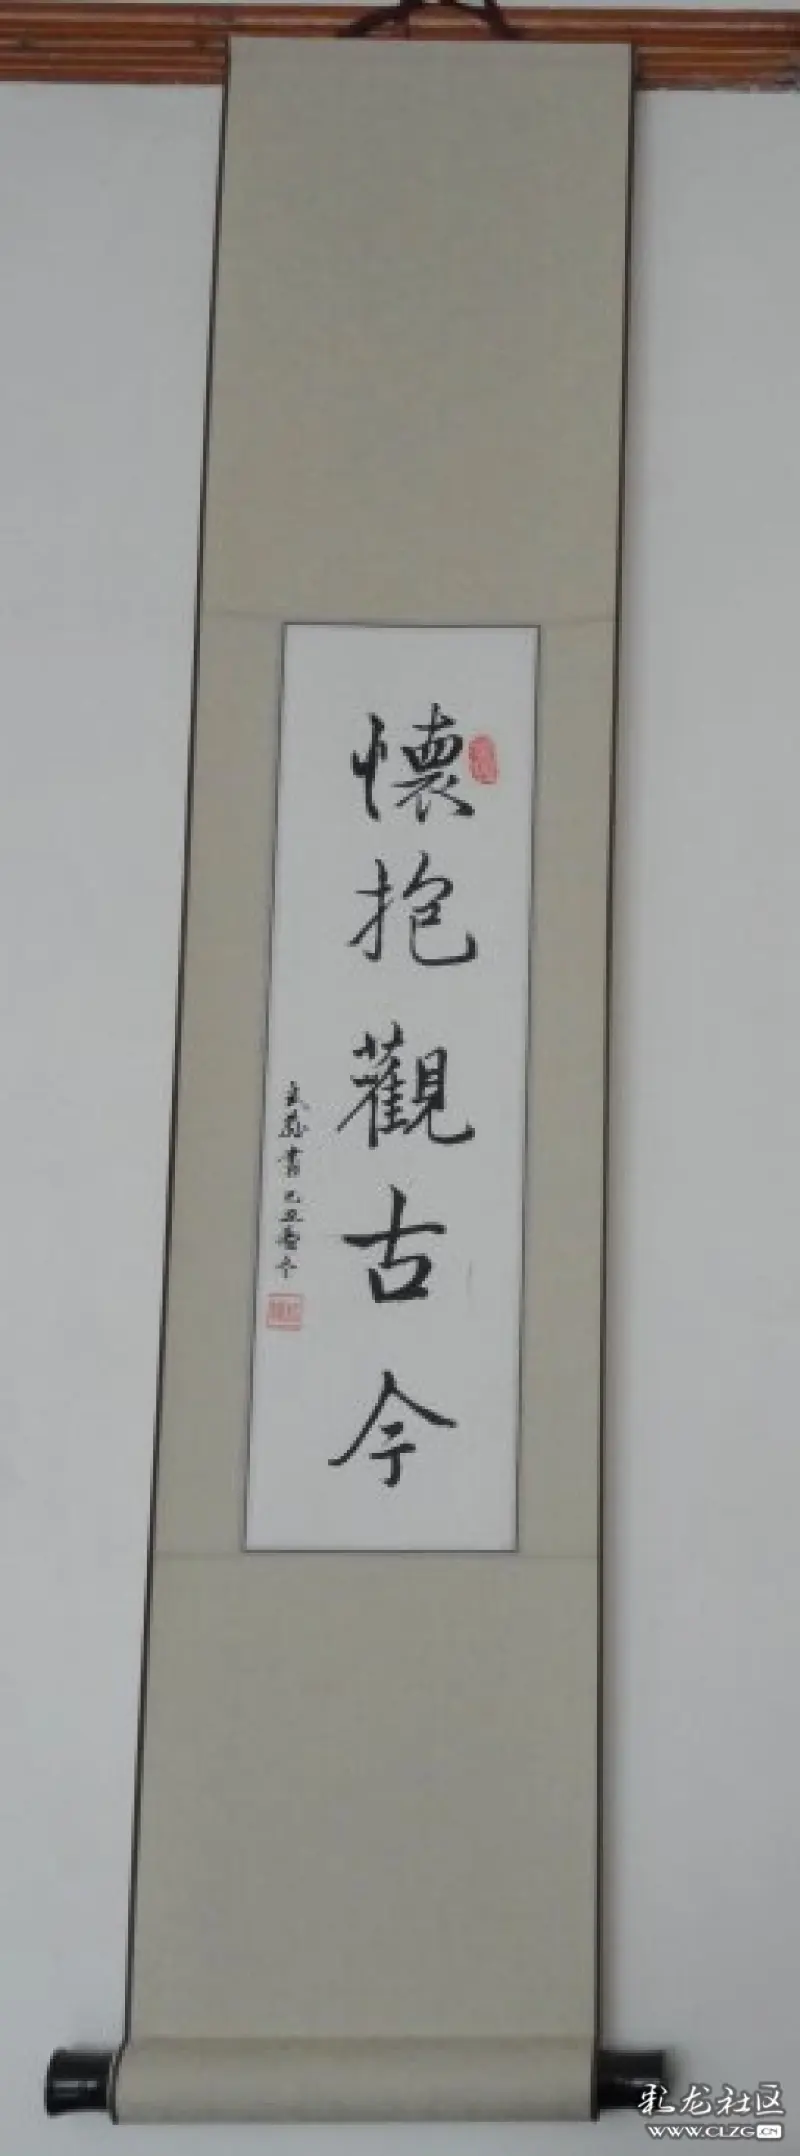 懷抱觀古今
书己丑春
彩龙社区
WWW.CLZG.CN